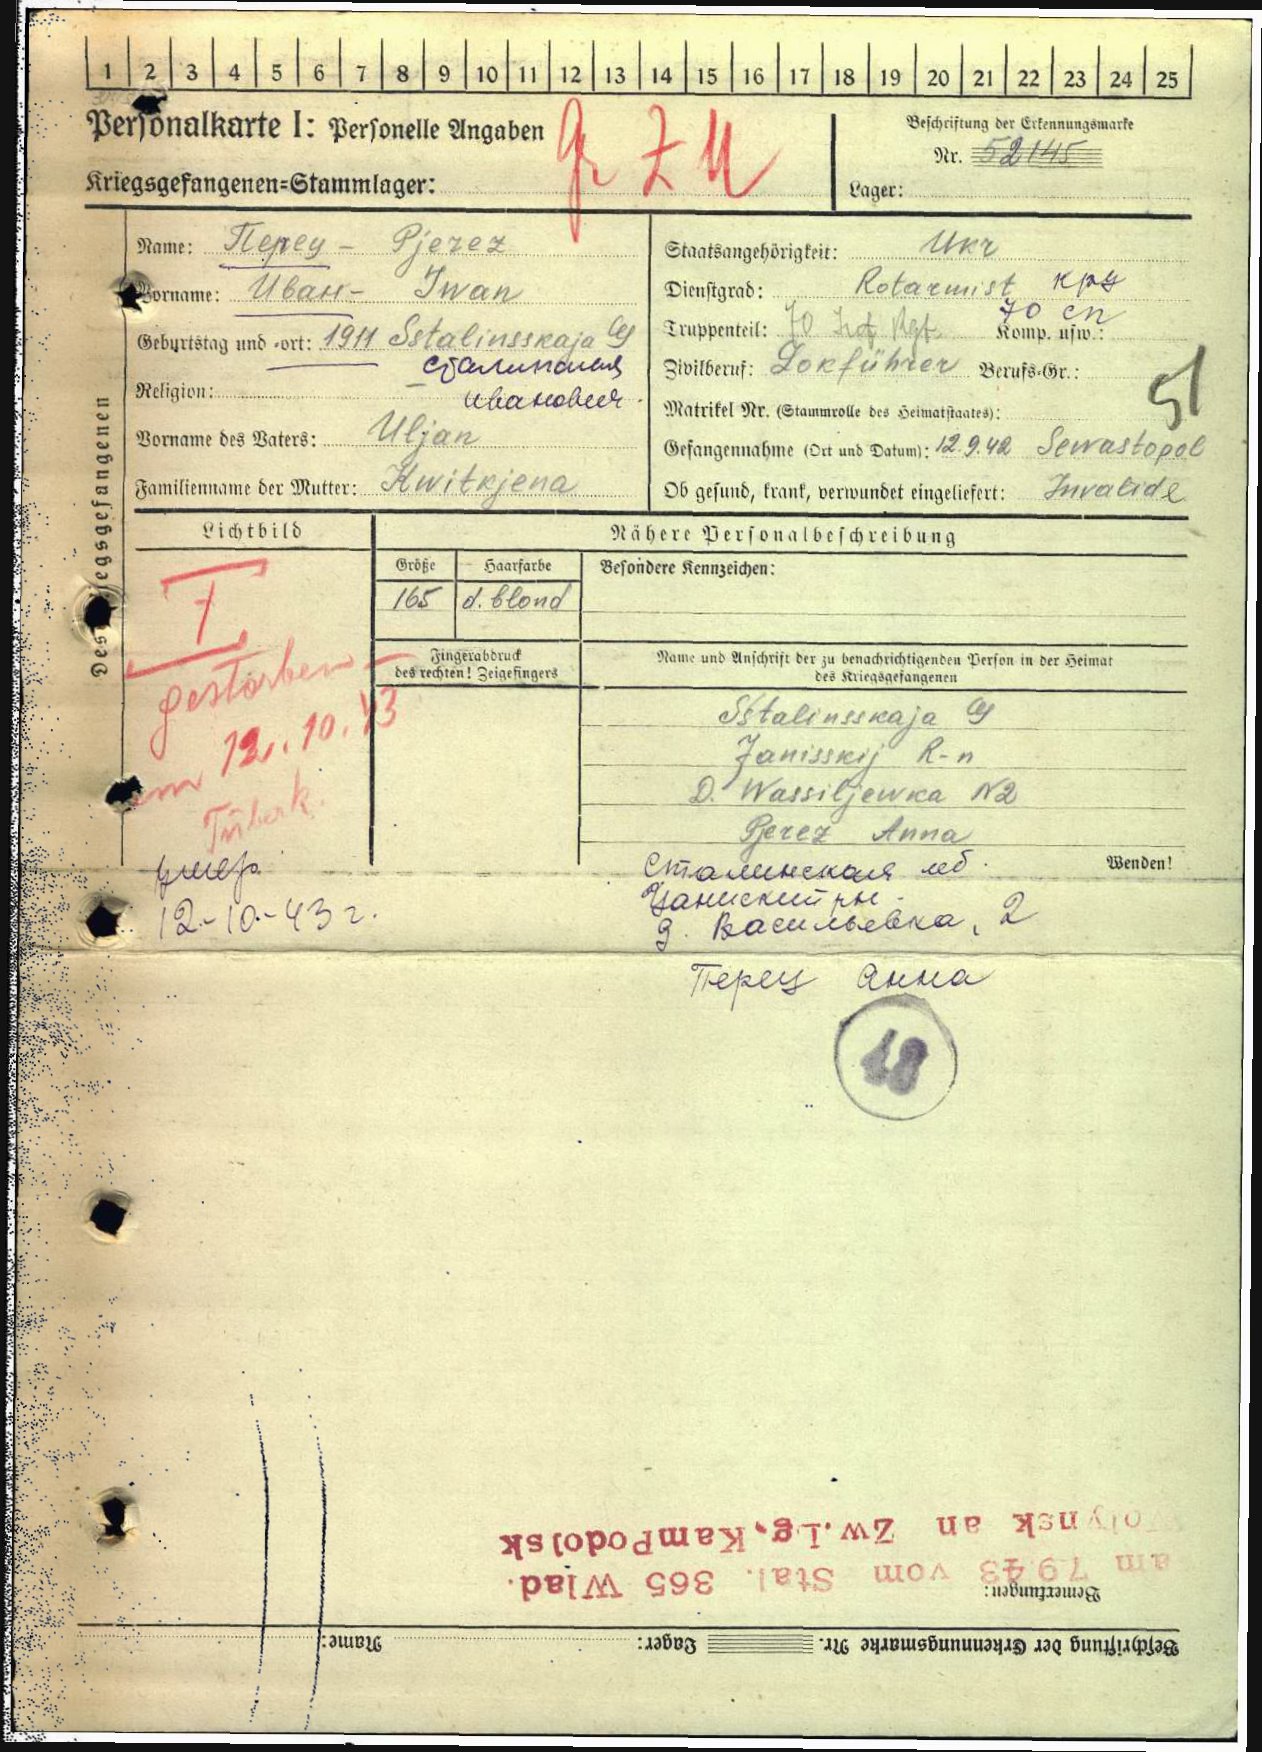 1 2 3 4 5 6 7 8 9 10 11 12 13 14 15 16 17 18 19 20 21 22 23 24 25
Personalkarte I: Personelle Angaben
Beschriftung der Erkennungsmarke
Nr. 52145
Kriegsgefangenen=Stammlager:
Lager:
Des Kriegsgefangenen
Name: Перец - Pjerez
Vorname: Иван - Iwan
Geburtstag und =ort: 1911 Sstalinsskaja
Сталинская
Religion:
Ивановая
Vorname des Vaters: Uljan
Familienname der Mutter: Kwitkjena
Staatsangehörigkeit: Ukr
Dienstgrad: Rotarmist кр-ц
70 сп
Truppenteil: 70 Inf Rgt. Komp. usw.:
Zivilberuf: Lokführer Berufs=Gr.:
51
Matrikel Nr. (Stammrolle des Heimatstaates):
Gefangennahme (Ort und Datum): 12.9.42 Sewastopol
Ob gesund, krank, verwundet eingeliefert: Invalide
Lichtbild
Nähere Personalbeschreibung
Größe Haarfarbe Besondere Kennzeichen:
165 d. blond
Fingerabdruck
des rechten! Zeigefingers
Name und Anschrift der zu benachrichtigenden Person in der Heimat
des Kriegsgefangenen
gestorben
am 12.10.43
Tuberk.
умер
12-10-43 г.
Sstalinsskaja
Janisskij R-n
D. Wassiljewka N2
Pjerez Anna
Wenden!
Сталинская об.
Янискийский р-н
д. Васильевка, 2
Перец Анна
18
Beschriftung der Erkennungsmarke Nr. Lager: Name:
Bemerkungen:
am 7.9.43 vom Stal. 365 Wlad.
Wolynsk an Zw.Lg. KamPodolsk